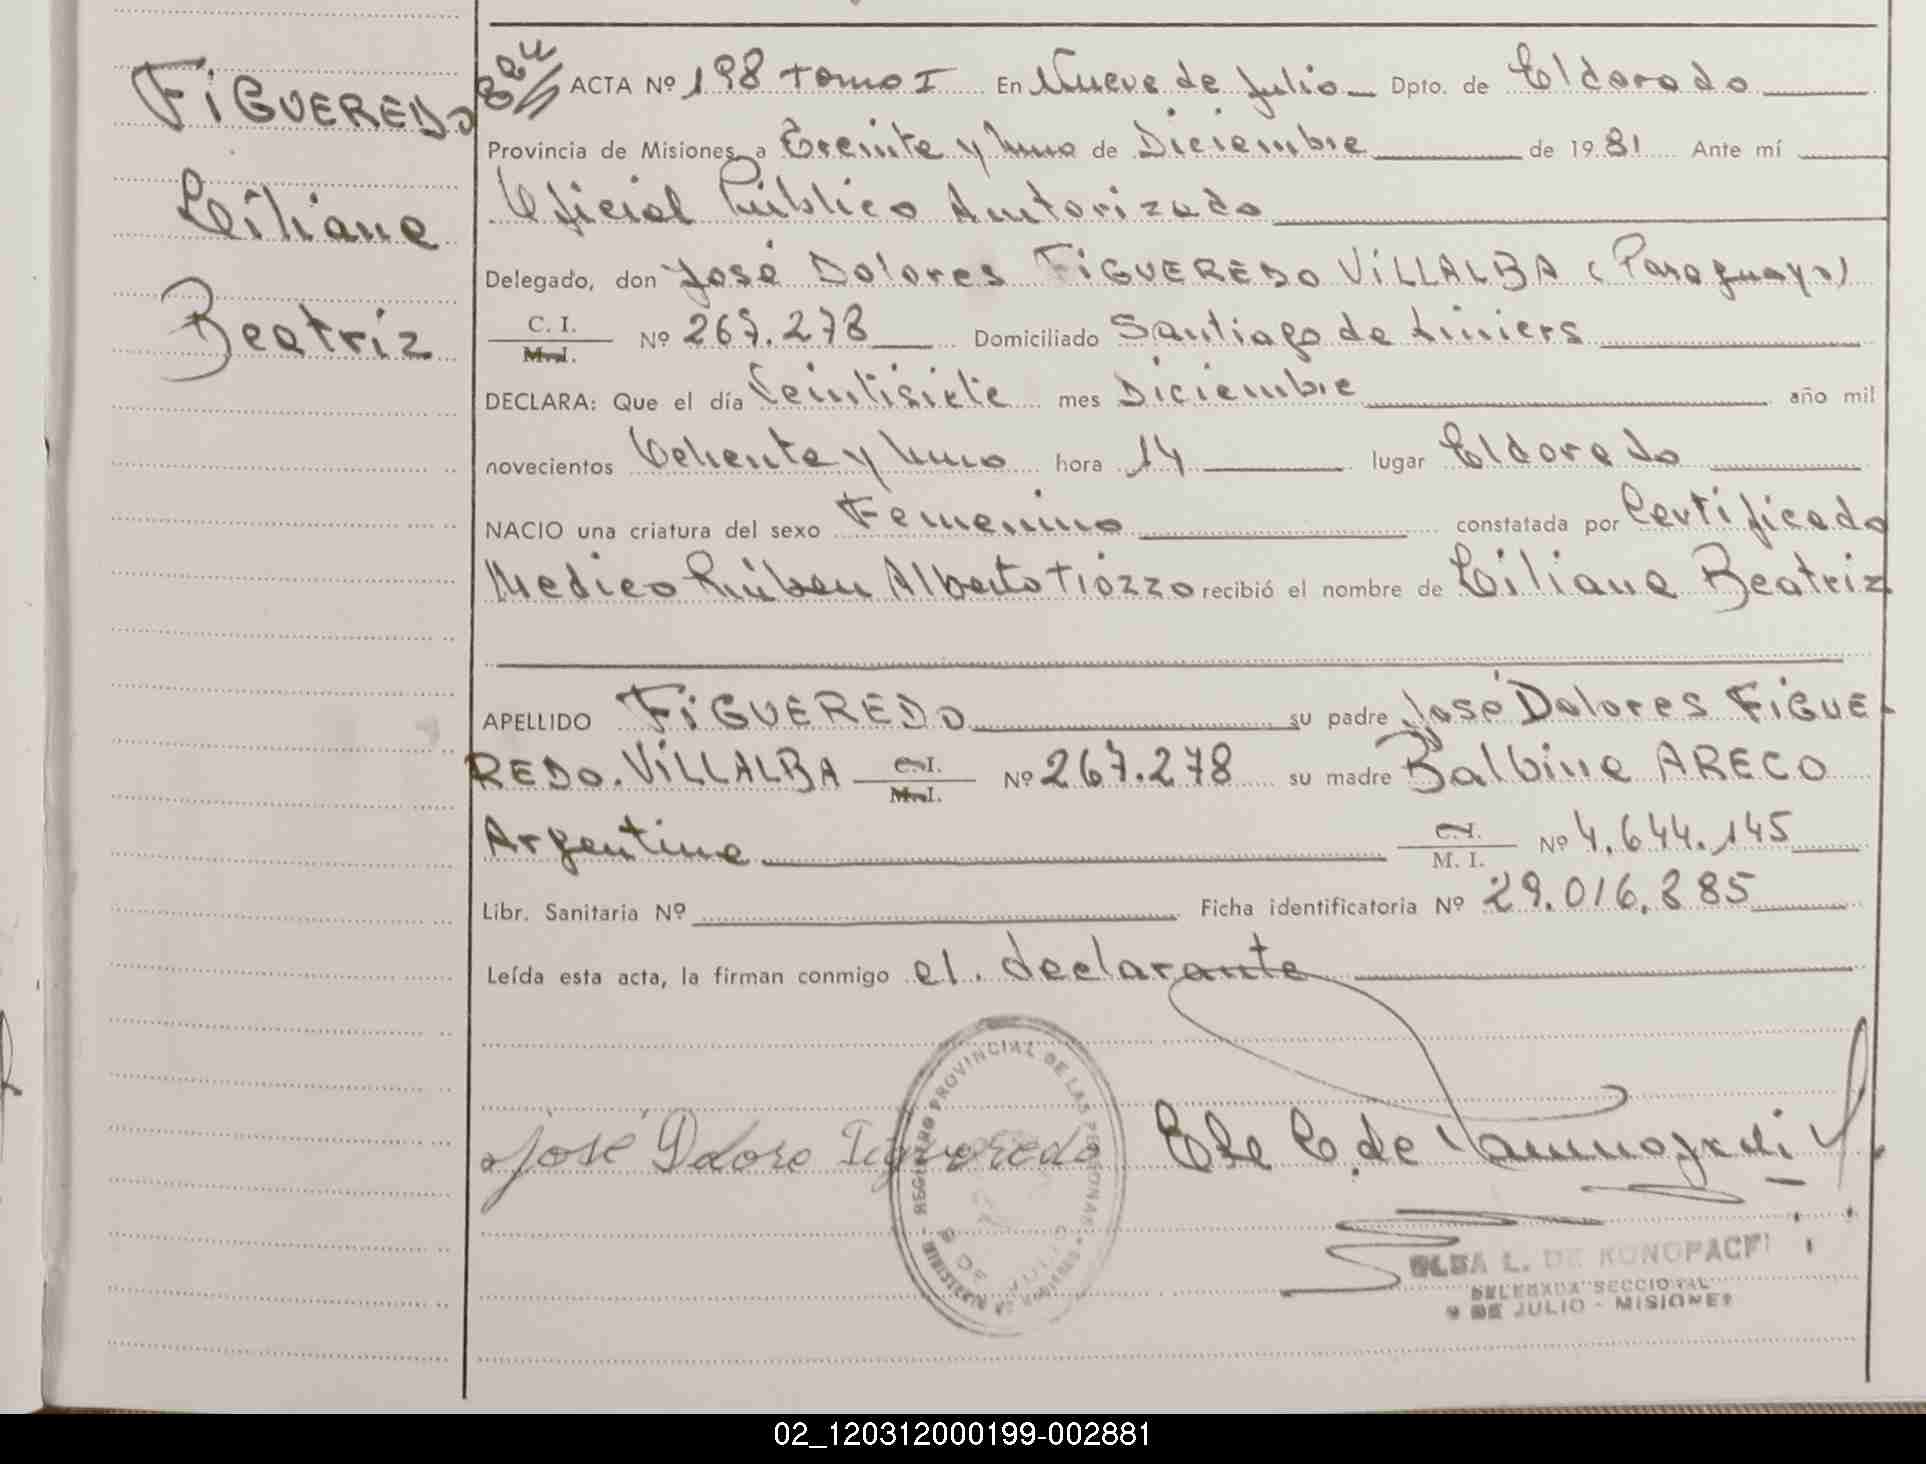 FIGUEREDO
Liliana
Beatriz
ACTA Nº 198 tomo I En Nueve de Julio Dpto. de Eldorado
Provincia de Misiones, a Treinta y Uno de Diciembre de 1981 Ante mí
Oficial Público Autorizado
Delegado, don José Dolores FIGUEREDO VILLALBA (Paraguayo)
C. I.
M. I. Nº 267.278 Domiciliado Santiago de Liniers
DECLARA: Que el día Veintisiete mes Diciembre año mil
novecientos Ochenta y Uno hora 14 lugar Eldorado
NACIO una criatura del sexo Femenino constatada por Certificado
Medico Rúben Alberto Tiozzo recibió el nombre de Liliana Beatriz
APELLIDO FIGUEREDO su padre José Dolores FIGUE-
REDO. VILLALBA C. I. M. I. Nº 267.278 su madre Balbina ARECO
Argentina C. I. M. I. Nº 4.644.145
Libr. Sanitaria Nº Ficha identificatoria Nº 29.016.885
Leída esta acta, la firman conmigo el declarante
José Dolore Figueredo
REGISTRO PROVINCIAL DE LAS PERSONAS
ELBA L. DE KONOPACKI
DELEGADA SECCIONAL
9 DE JULIO - MISIONES
02_120312000199-002881